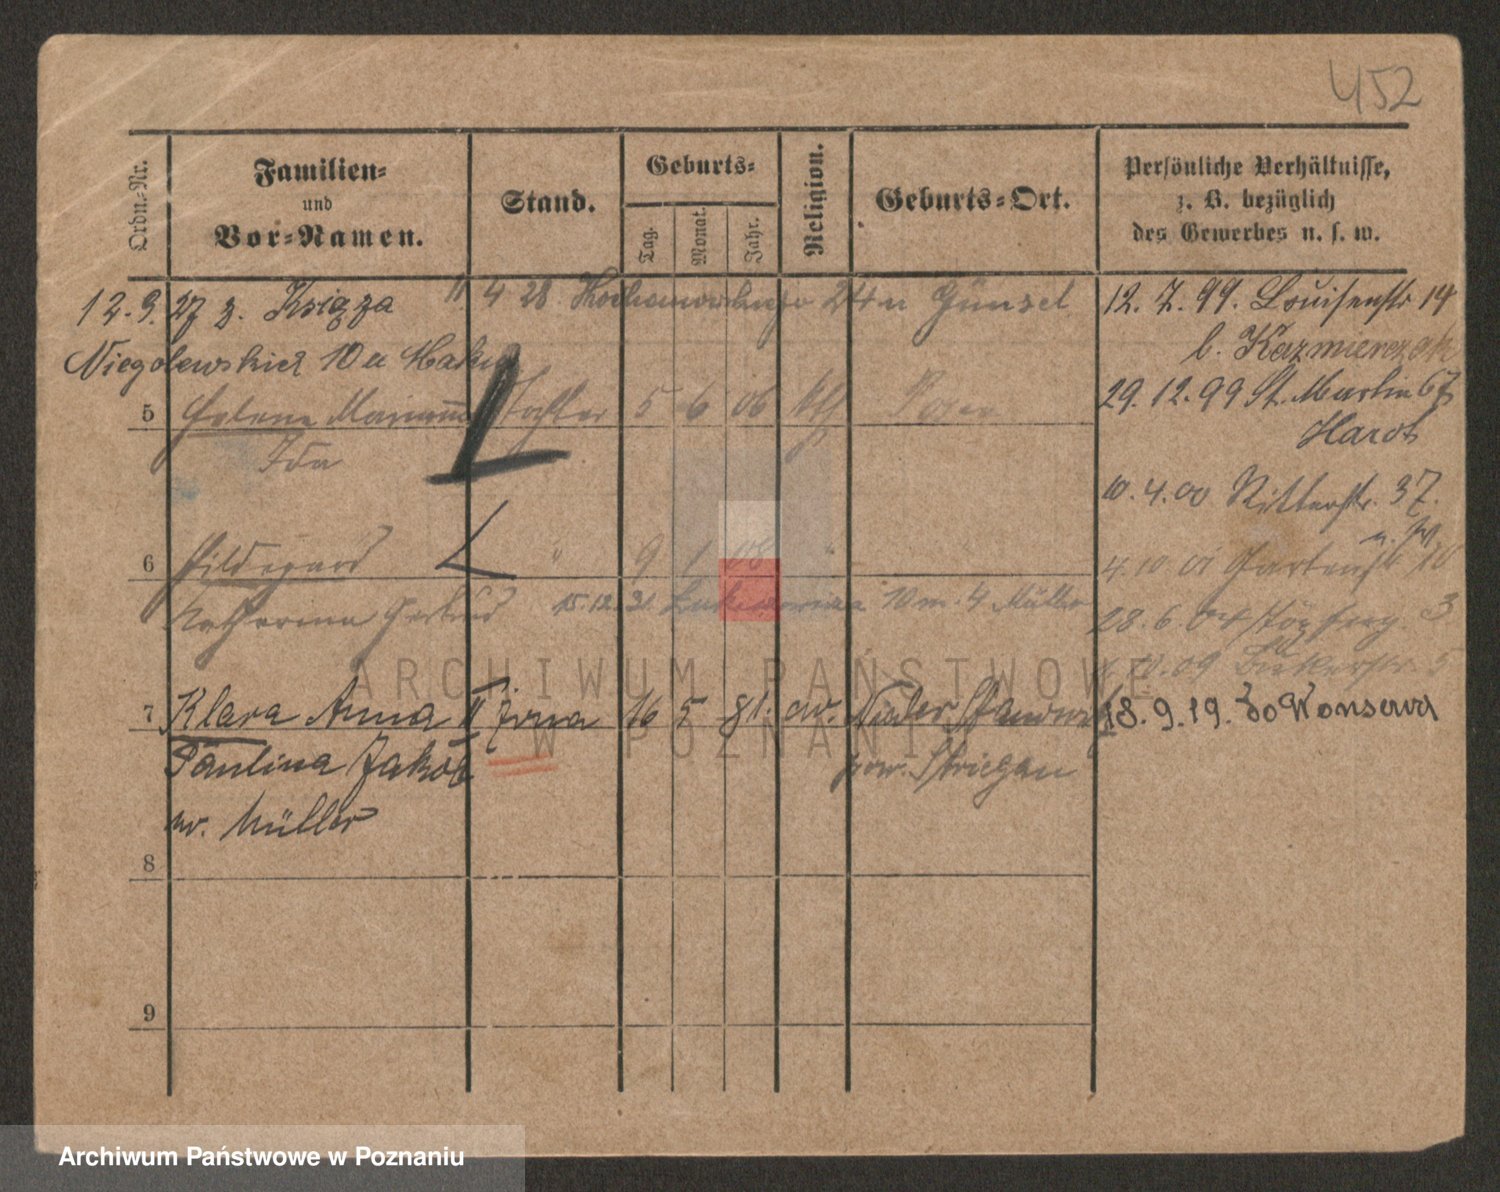 452
Ordn.-Nr.
Familien-
und
Vor-Namen.
Stand.
Geburts-
Tag.
Monat.
Jahr.
Religion.
Geburts-Ort.
Persönliche Verhältnisse,
z. B. bezüglich
des Gewerbes u. s. w.
12.9.27 z. Księza
11 4 28 24 Günsel
12. 7. 99. Louisenstr 14
Niegolewskich 10
b. Kazmierczak
5 Helene Marianna Tochter 5 6 06 Posen
29. 12. 99 St. Martin 67
Ida
10. 4. 00 Ritterstr. 37.
6 Hildegard " 9 1 08 "
4.10.01 Gartenstr 10
Katharina Gertrud 15.12.31. 10 m. 4 Müller
28. 6. 04 3
09 Bukerstr 5
7 Klara Anna II żona 16 5 81. ew. Nieder
18. 9. 19. Wonsowa
Paulina Jakob pow. Striegau
w. Müller
8
9
ARCHIWUM PAŃSTWOWE
W POZNANIU
Archiwum Państwowe w Poznaniu